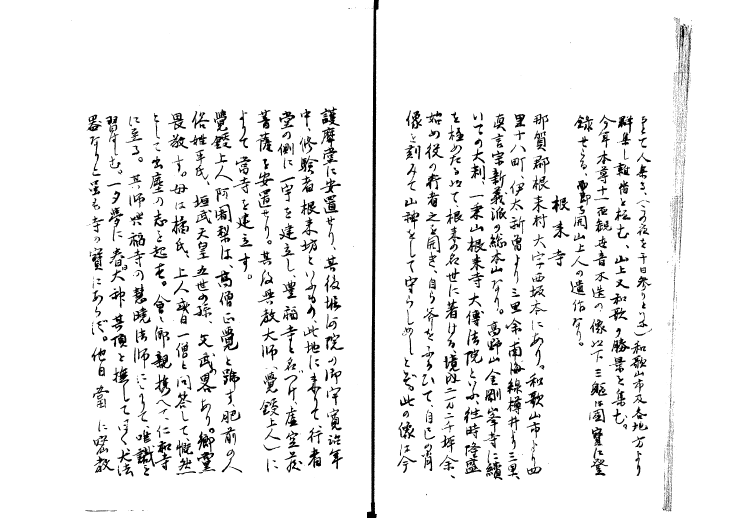 群集し雑沓を極む、山上又和歌の勝景を集む。
今年本尊十一面観世音木造の像以下三躯は国寳に登
録せらる、即ち開山上人の遺作なり。
根来寺
那賀郡根来村大字西坂本にあり。和歌山市より四
里十八町、伊太祈曽より三里余、南海線樽井より三里、
真言宗新義派の総本山なり。高野山金剛峯寺に續
いての大刹、一乗山根来寺大傳法院といふ、往時隆盛
を極めたるは、根来の名世に著ける境内二万二千坪余、
始め役の行者之を開き、自ら斧をふるひて、自己の肖
像を刻みて山神をして守らしめしといふ、此の像は今
護摩堂に安置せり、其後堀河院の御宇寛治年
中、修験者根来坊といふもの、此地に来りて行者
堂の側に一宇を建立し豊福寺と名づけ、虚空蔵
菩薩を安置せり。其後興教大師(覺鑁上人)に
よりて當寺を建立す。
覺鑁上人阿闍梨は、高僧正覺と號す、肥前の人
俗姓平氏、垣武天皇五世の孫、文武畧あり。郷黨
畏敬す。母は橘氏、上人或日一僧と問答して慨然
として出塵の志を起す。會々郷親携へて仁和寺
に至る。其師興福寺の慧暁法師によりて唯識を
習はしむ。一夕夢に春日大神其頂を撫して曰く大法
器なりと雖も寺の寳にあらず。他日當に密教